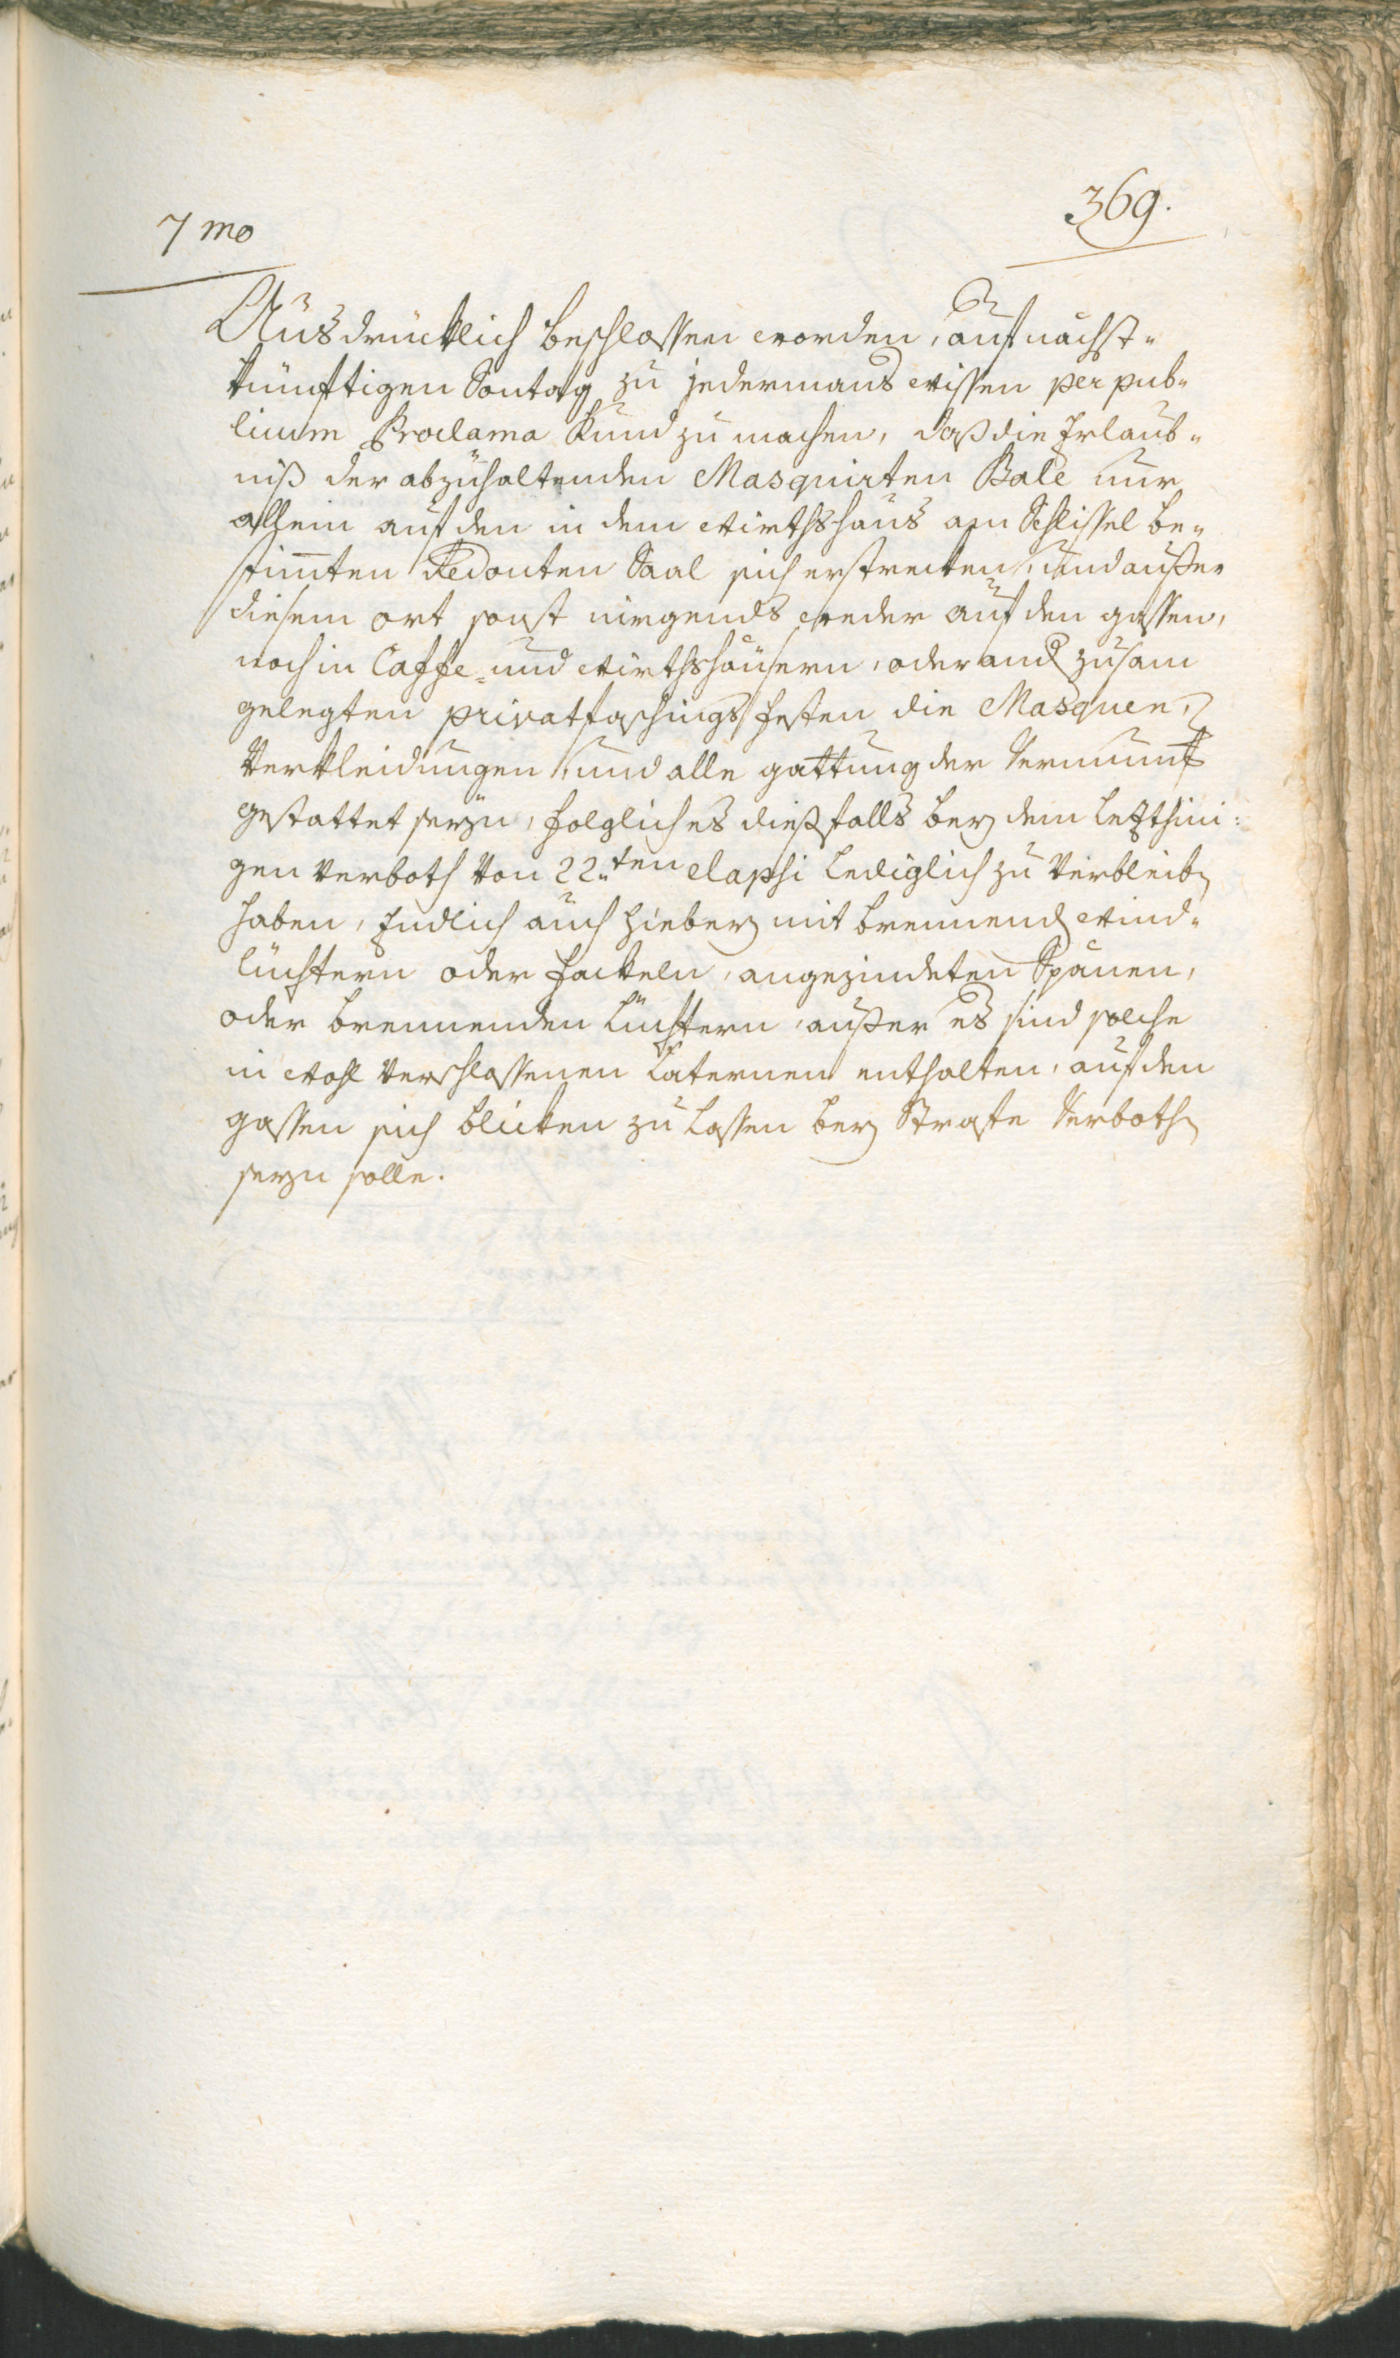 369.
7mo
Ausdrücklich beschlossen worden, auf nächst-
künftigen Sontag zu jedermans wissen per pub-
licum Proclama Kund zu machen, daß die Erlaub-
niß der abzuhaltenden Masquirten Bale nur
allein auf den in dem Wirthshaus am Schlissel be-
stim̄ten Redouten Saal sich erstrecken, und außer
diesem ort sonst nirgends weder auf den gassen,
noch in Caffe- und Wirthshäusern, oder and zusam
gelegten privatfaschings festen die Masquen,
Verkleidungen, und alle gattung der Vermum̄
gestattet seyn, folglich es dießfalls bey dem letzthini-
gen Verboth von 22.ten elapsi lediglich zu Verbleiben
haben, Endlich auch hiebey mit brennend Wind-
lüchtern oder fackeln, angezindeten Spänen,
oder brennenden Lüchtern, außer es sind solche
in wohl Verschlossenen Laternen enthalten, auf den
gassen sich blicken zu lassen bey Strafe Verbothen
seyn solle.